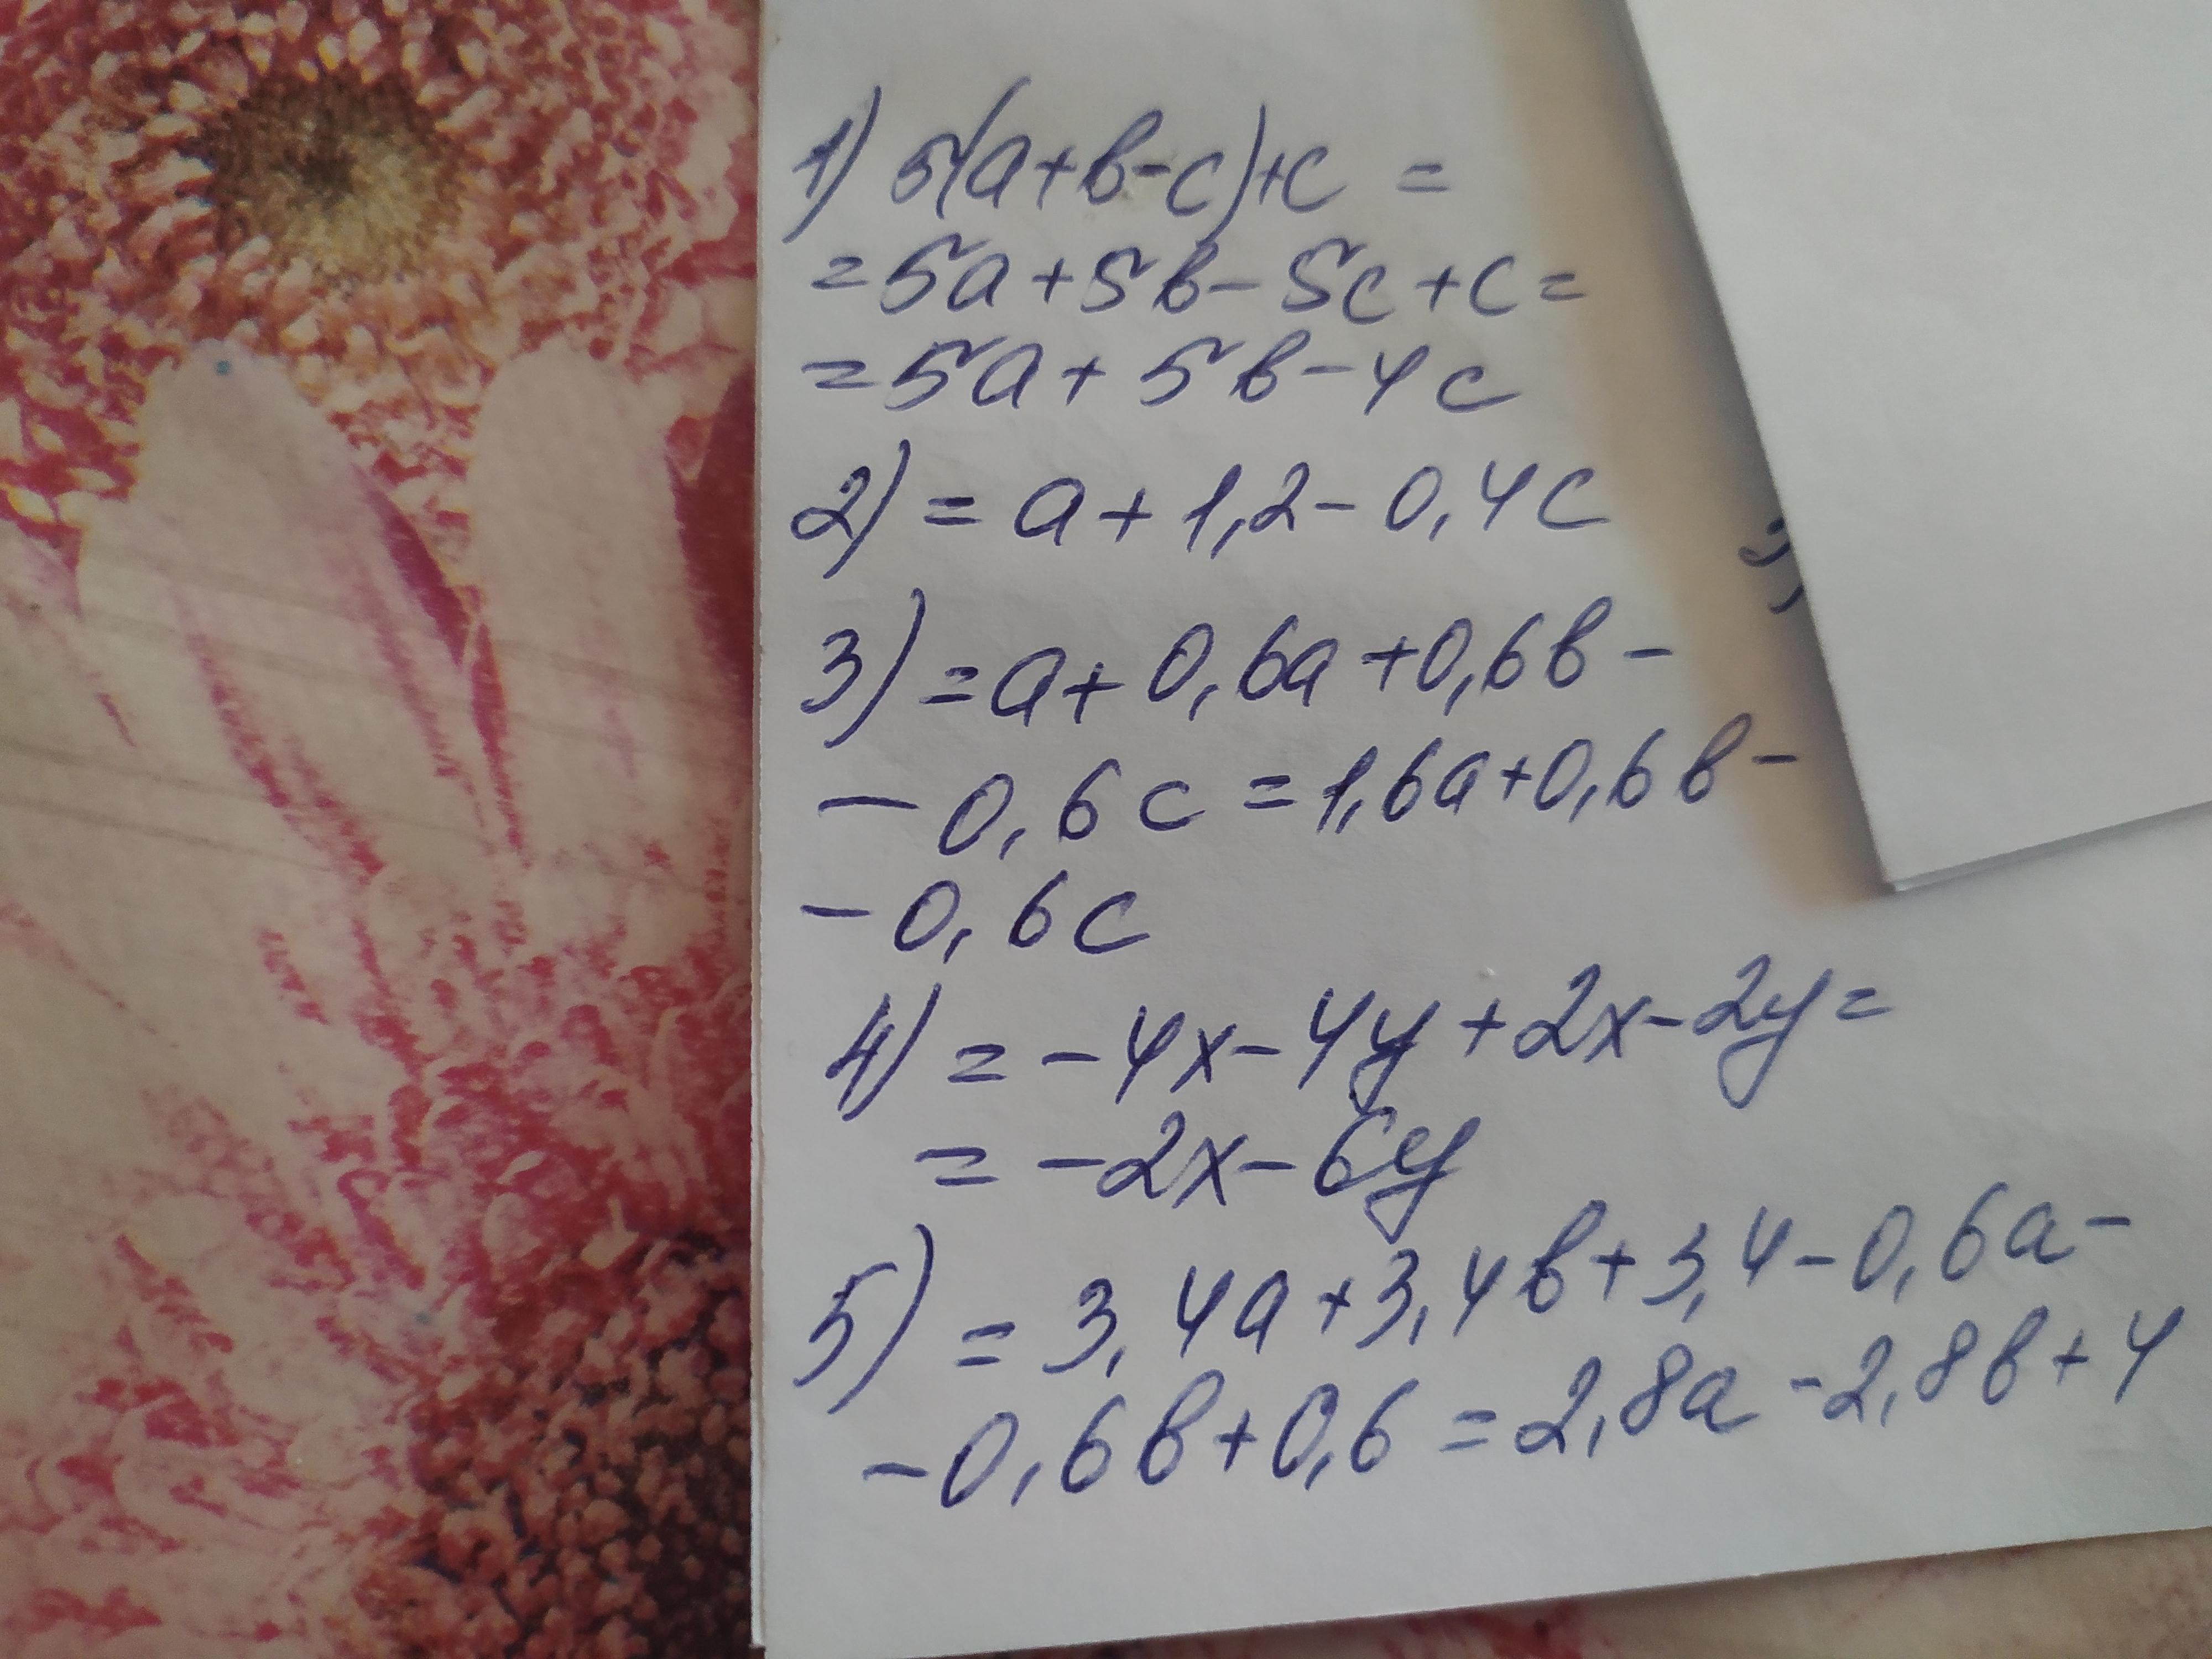 1) 5(a+в-c)+c =
=5a+5в-5c+c=
=5a+5в-4c
2) = a+1,2-0,4c
3) =a+0,6a+0,6в-
-0,6c=1,6a+0,6в-
-0,6c
4) = -4x-4y+2x-2y=
= -2x-6y
5) = 3,4a+3,4в+3,4-0,6a-
-0,6в+0,6=2,8a-2,8в+4